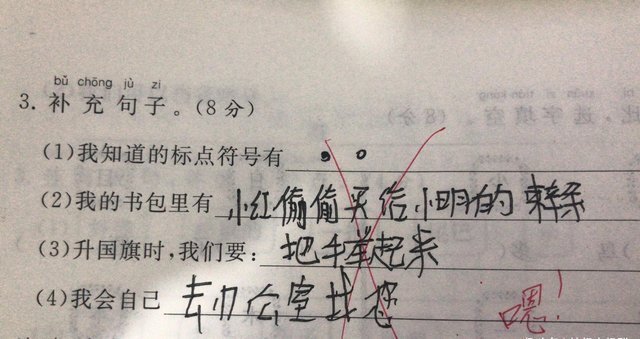 bǔ chōng jù zi
3. 补充句子。(8分)
(1)我知道的标点符号有 ，。
(2)我的书包里有 小红偷偷买给小明的
(3)升国旗时,我们要: 把手举起来
(4)我会自己 去办公室找您 嗯!